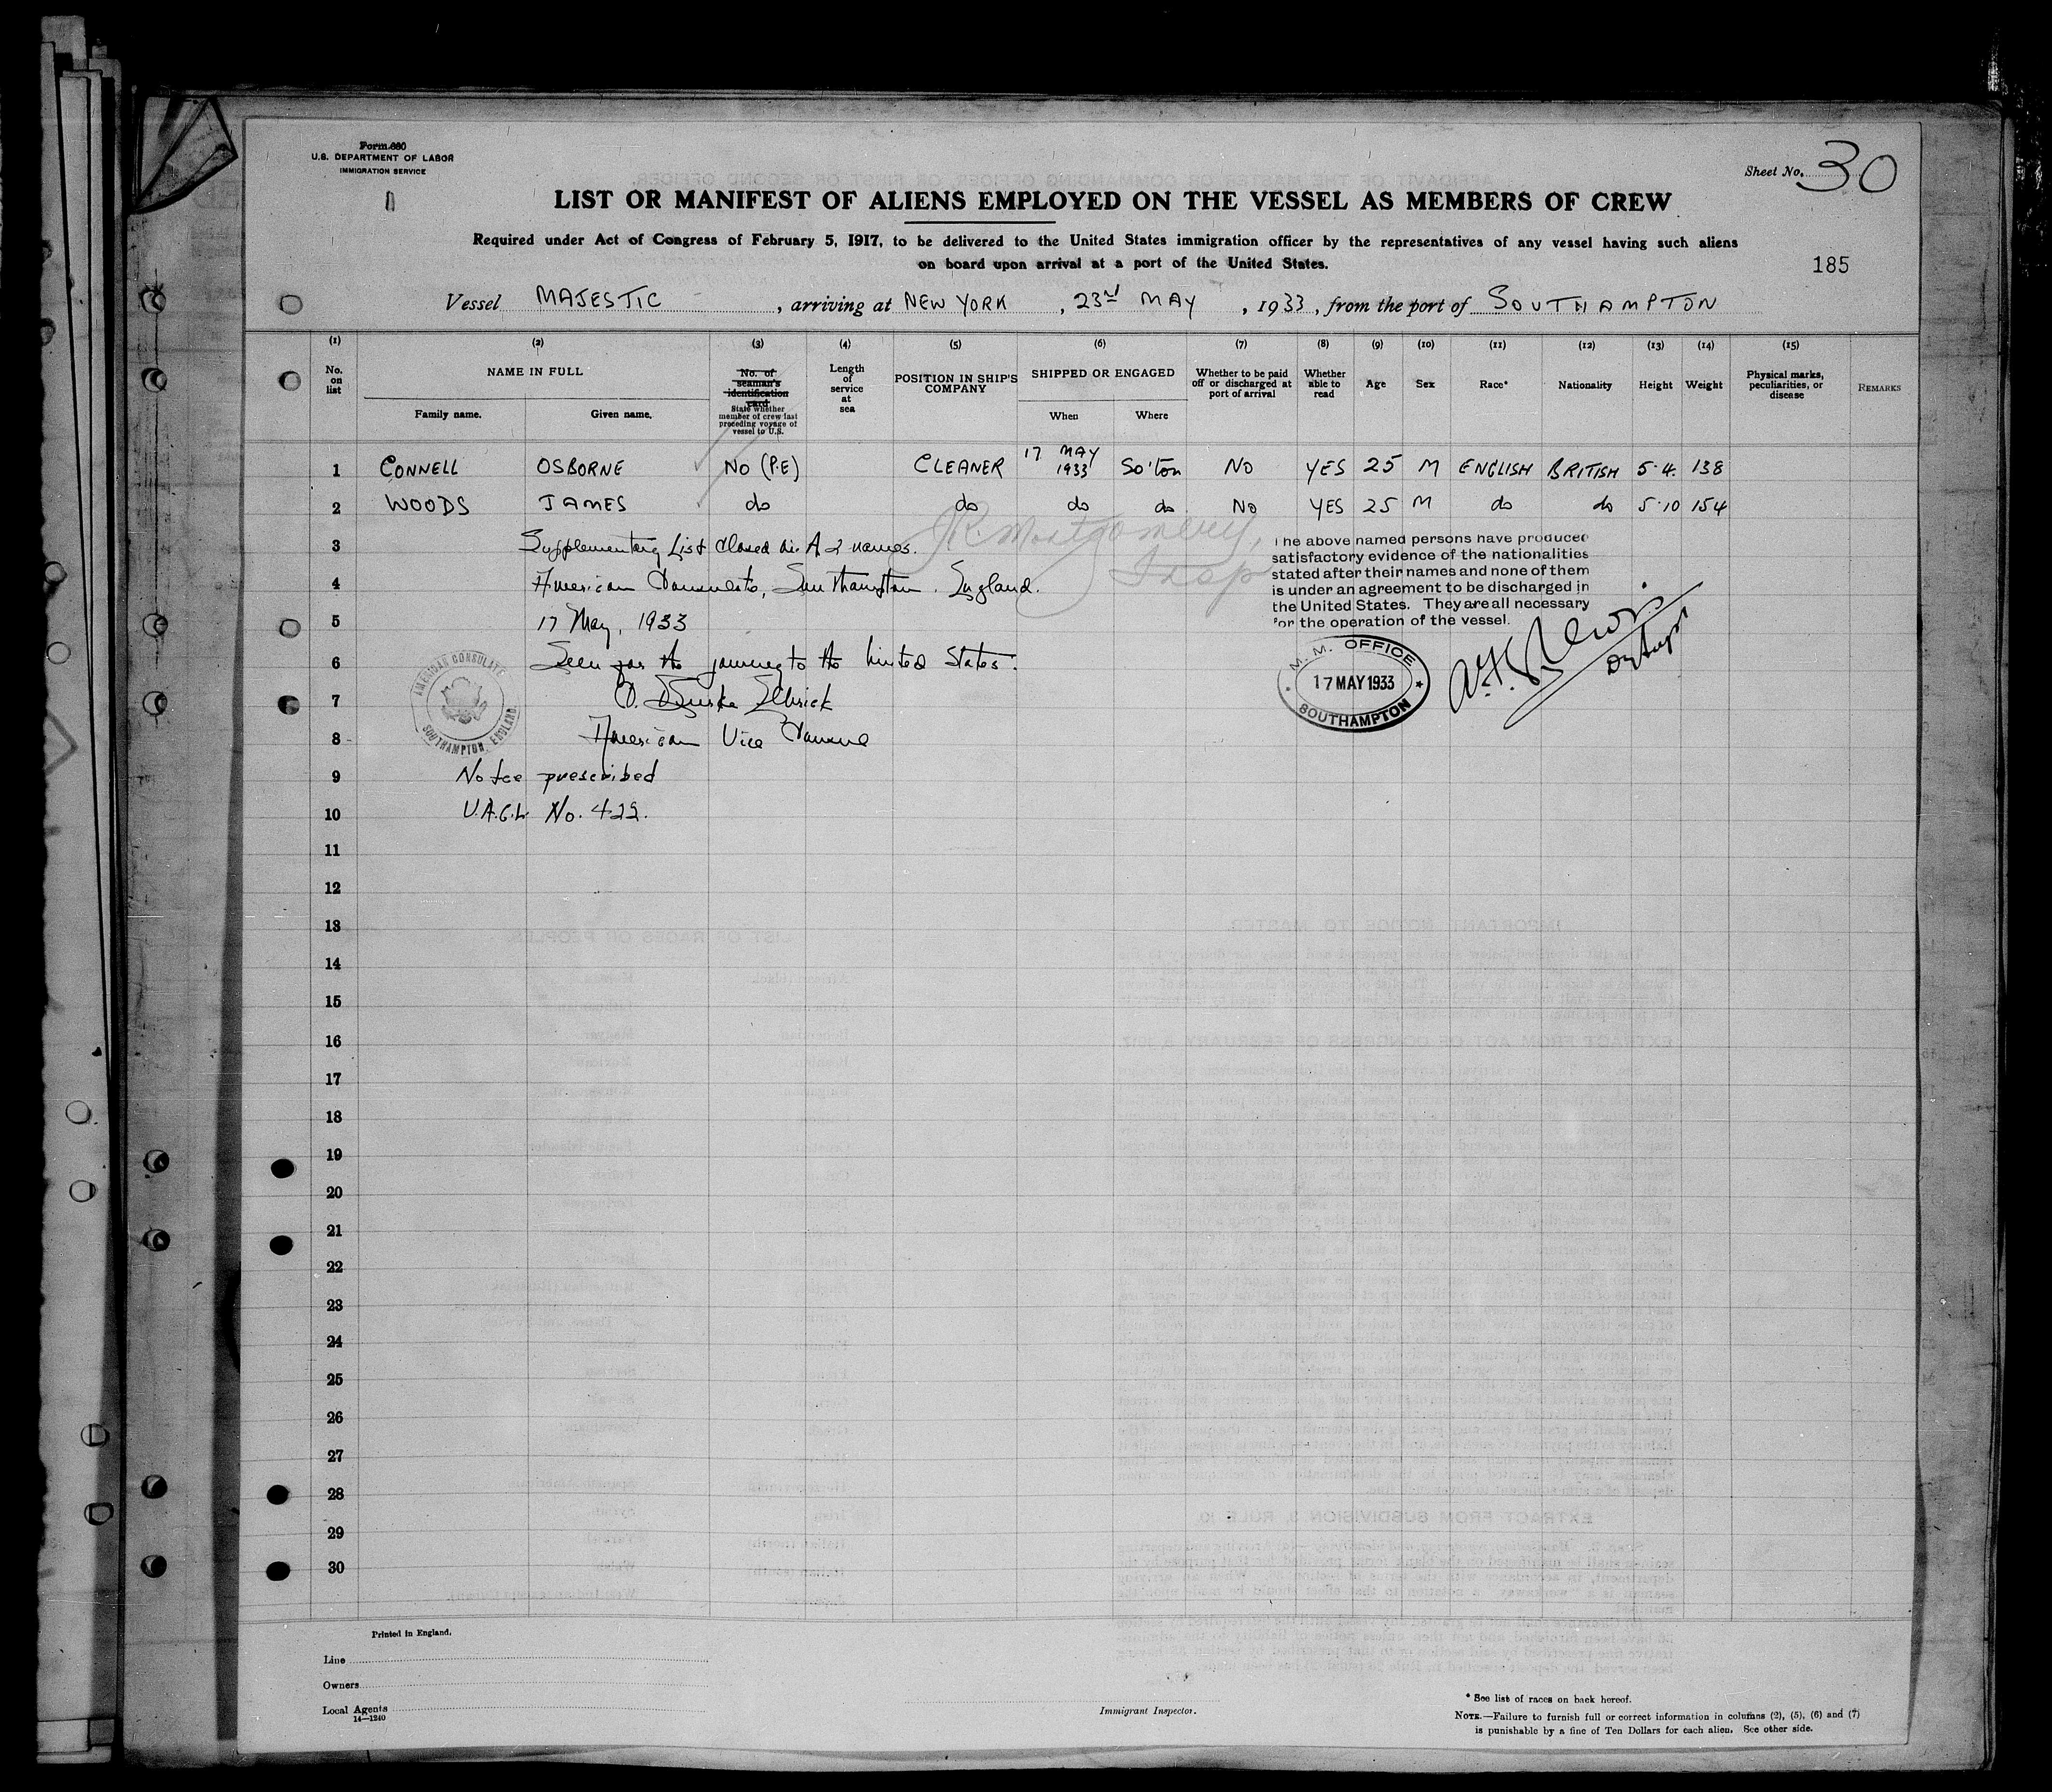 Form 680
U.S. DEPARTMENT OF LABOR
IMMIGRATION SERVICE
Sheet No. 30
LIST OR MANIFEST OF ALIENS EMPLOYED ON THE VESSEL AS MEMBERS OF CREW
Required under Act of Congress of February 5, 1917, to be delivered to the United States immigration officer by the representatives of any vessel having such aliens
on board upon arrival at a port of the United States.
185
Vessel MAJESTIC, arriving at NEW YORK, 23rd MAY, 1933, from the port of SOUTHAMPTON
(1) (2) (3) (4) (5) (6) (7) (8) (9) (10) (11) (12) (13) (14) (15)
No. on list
NAME IN FULL
Family name. Given name.
No. of seaman's identification card
State whether member of crew last preceding voyage of vessel to U.S.
Length of service at sea
POSITION IN SHIP'S COMPANY
SHIPPED OR ENGAGED
When Where
Whether to be paid off or discharged at port of arrival
Whether able to read
Age
Sex
Race*
Nationality
Height
Weight
Physical marks, peculiarities, or disease
REMARKS
1 CONNELL OSBORNE NO (P.E) CLEANER 17 MAY 1933 So'ton NO YES 25 M ENGLISH BRITISH 5·4. 138
2 WOODS JAMES do do do do NO YES 25 M do do 5·10 154
3 Supplementary List closed 2 names.
J.R. Montgomery, Insp
4 American Consulate, Southampton. England.
5 17 May, 1933
6 Seen for the journey to the United States.
7
8 American Vice Consul
9 No fee prescribed
10 No. 422.
The above named persons have produced
satisfactory evidence of the nationalities
stated after their names and none of them
is under an agreement to be discharged in
the United States. They are all necessary
for the operation of the vessel.
M. M. OFFICE
17 MAY 1933
SOUTHAMPTON
AMERICAN CONSULATE
SOUTHAMPTON, ENGLAND
11
12
13
14
15
16
17
18
19
20
21
22
23
24
25
26
27
28
29
30
Printed in England.
Line
Owners
Local Agents
14—1240
Immigrant Inspector.
* See list of races on back hereof.
NOTE.—Failure to furnish full or correct information in columns (2), (5), (6) and (7)
is punishable by a fine of Ten Dollars for each alien. See other side.